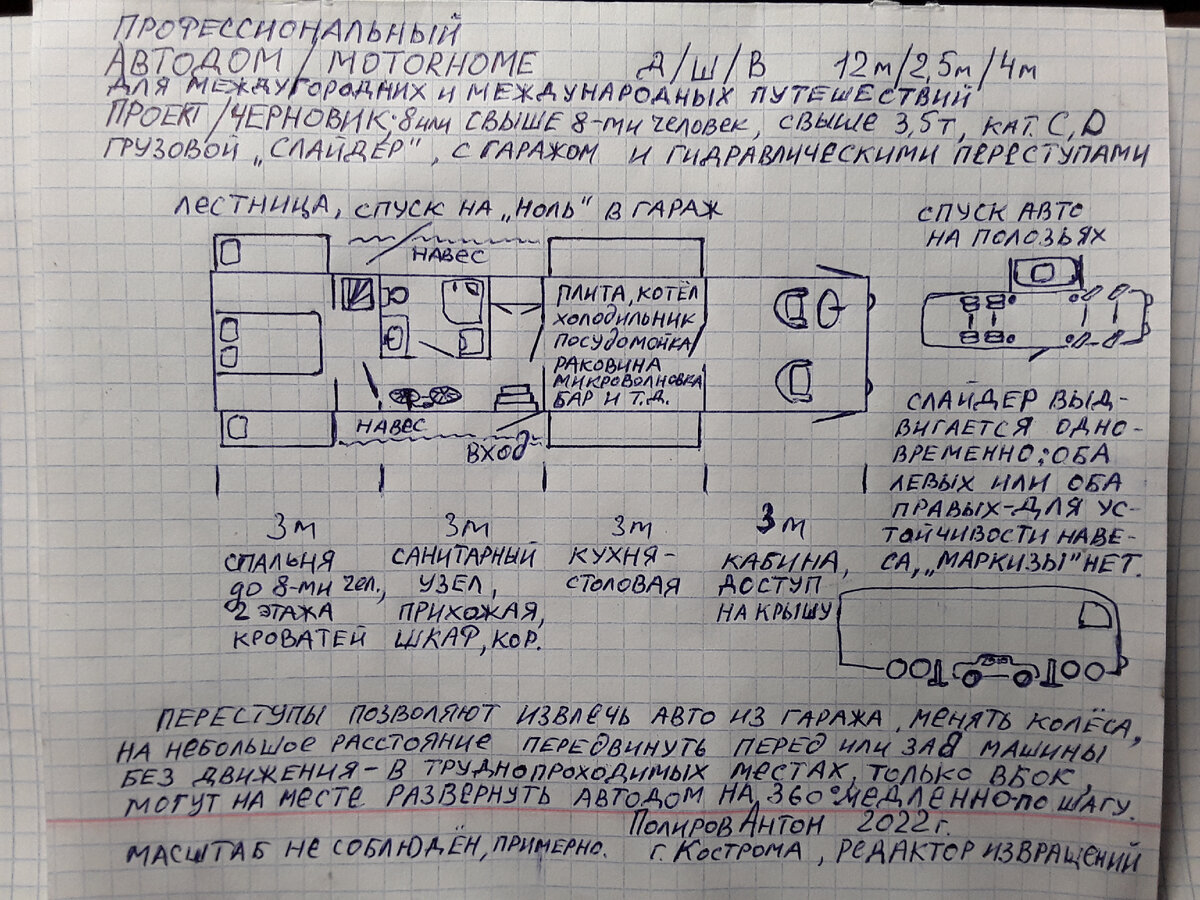 ПРОФЕССИОНАЛЬНЫЙ
АВТОДОМ / MOTORHOME Д/Ш/В 12м/2,5м/4м
ДЛЯ МЕЖДУГОРОДНИХ И МЕЖДУНАРОДНЫХ ПУТЕШЕСТВИЙ
ПРОЕКТ/ЧЕРНОВИК; 8 или СВЫШЕ 8-ми человек, СВЫШЕ 3,5т, КАТ. С, D
ГРУЗОВОЙ „СЛАЙДЕР", С ГАРАЖОМ И ГИДРАВЛИЧЕСКИМИ ПЕРЕСТУПАМИ
ЛЕСТНИЦА, СПУСК НА „НОЛЬ" В ГАРАЖ
СПУСК АВТО
НА ПОЛОЗЬЯХ
НАВЕС
ПЛИТА, КОТЁЛ
ХОЛОДИЛЬНИК
ПОСУДОМОЙКА
РАКОВИНА
МИКРОВОЛНОВКА
БАР И Т.Д.
НАВЕС
ВХОД
СЛАЙДЕР ВЫД-
ВИГАЕТСЯ ОДНО-
ВРЕМЕННО: ОБА
ЛЕВЫХ ИЛИ ОБА
ПРАВЫХ-ДЛЯ УС-
ТОЙЧИВОСТИ НАВЕ-
СА, „МАРКИЗЫ" НЕТ.
3м 3м 3м 3м
СПАЛЬНЯ
до 8-ми чел.,
2 ЭТАЖА
КРОВАТЕЙ
САНИТАРНЫЙ
УЗЕЛ,
ПРИХОЖАЯ,
ШКАФ, КОР.
КУХНЯ-
СТОЛОВАЯ
КАБИНА,
ДОСТУП
НА КРЫШУ
ПЕРЕСТУПЫ ПОЗВОЛЯЮТ ИЗВЛЕЧЬ АВТО ИЗ ГАРАЖА, МЕНЯТЬ КОЛЁСА,
НА НЕБОЛЬШОЕ РАССТОЯНИЕ ПЕРЕДВИНУТЬ ПЕРЕД ИЛИ ЗАД МАШИНЫ
БЕЗ ДВИЖЕНИЯ - В ТРУДНОПРОХОДИМЫХ МЕСТАХ, ТОЛЬКО ВБОК,
МОГУТ НА МЕСТЕ РАЗВЕРНУТЬ АВТОДОМ НА 360° МЕДЛЕННО-ПО ШАГУ.
ПОЛИРОВ АНТОН 2022г.
МАСШТАБ НЕ СОБЛЮДЁН, ПРИМЕРНО. г. КОСТРОМА, РЕДАКТОР ИЗВРАЩЕНИЙ